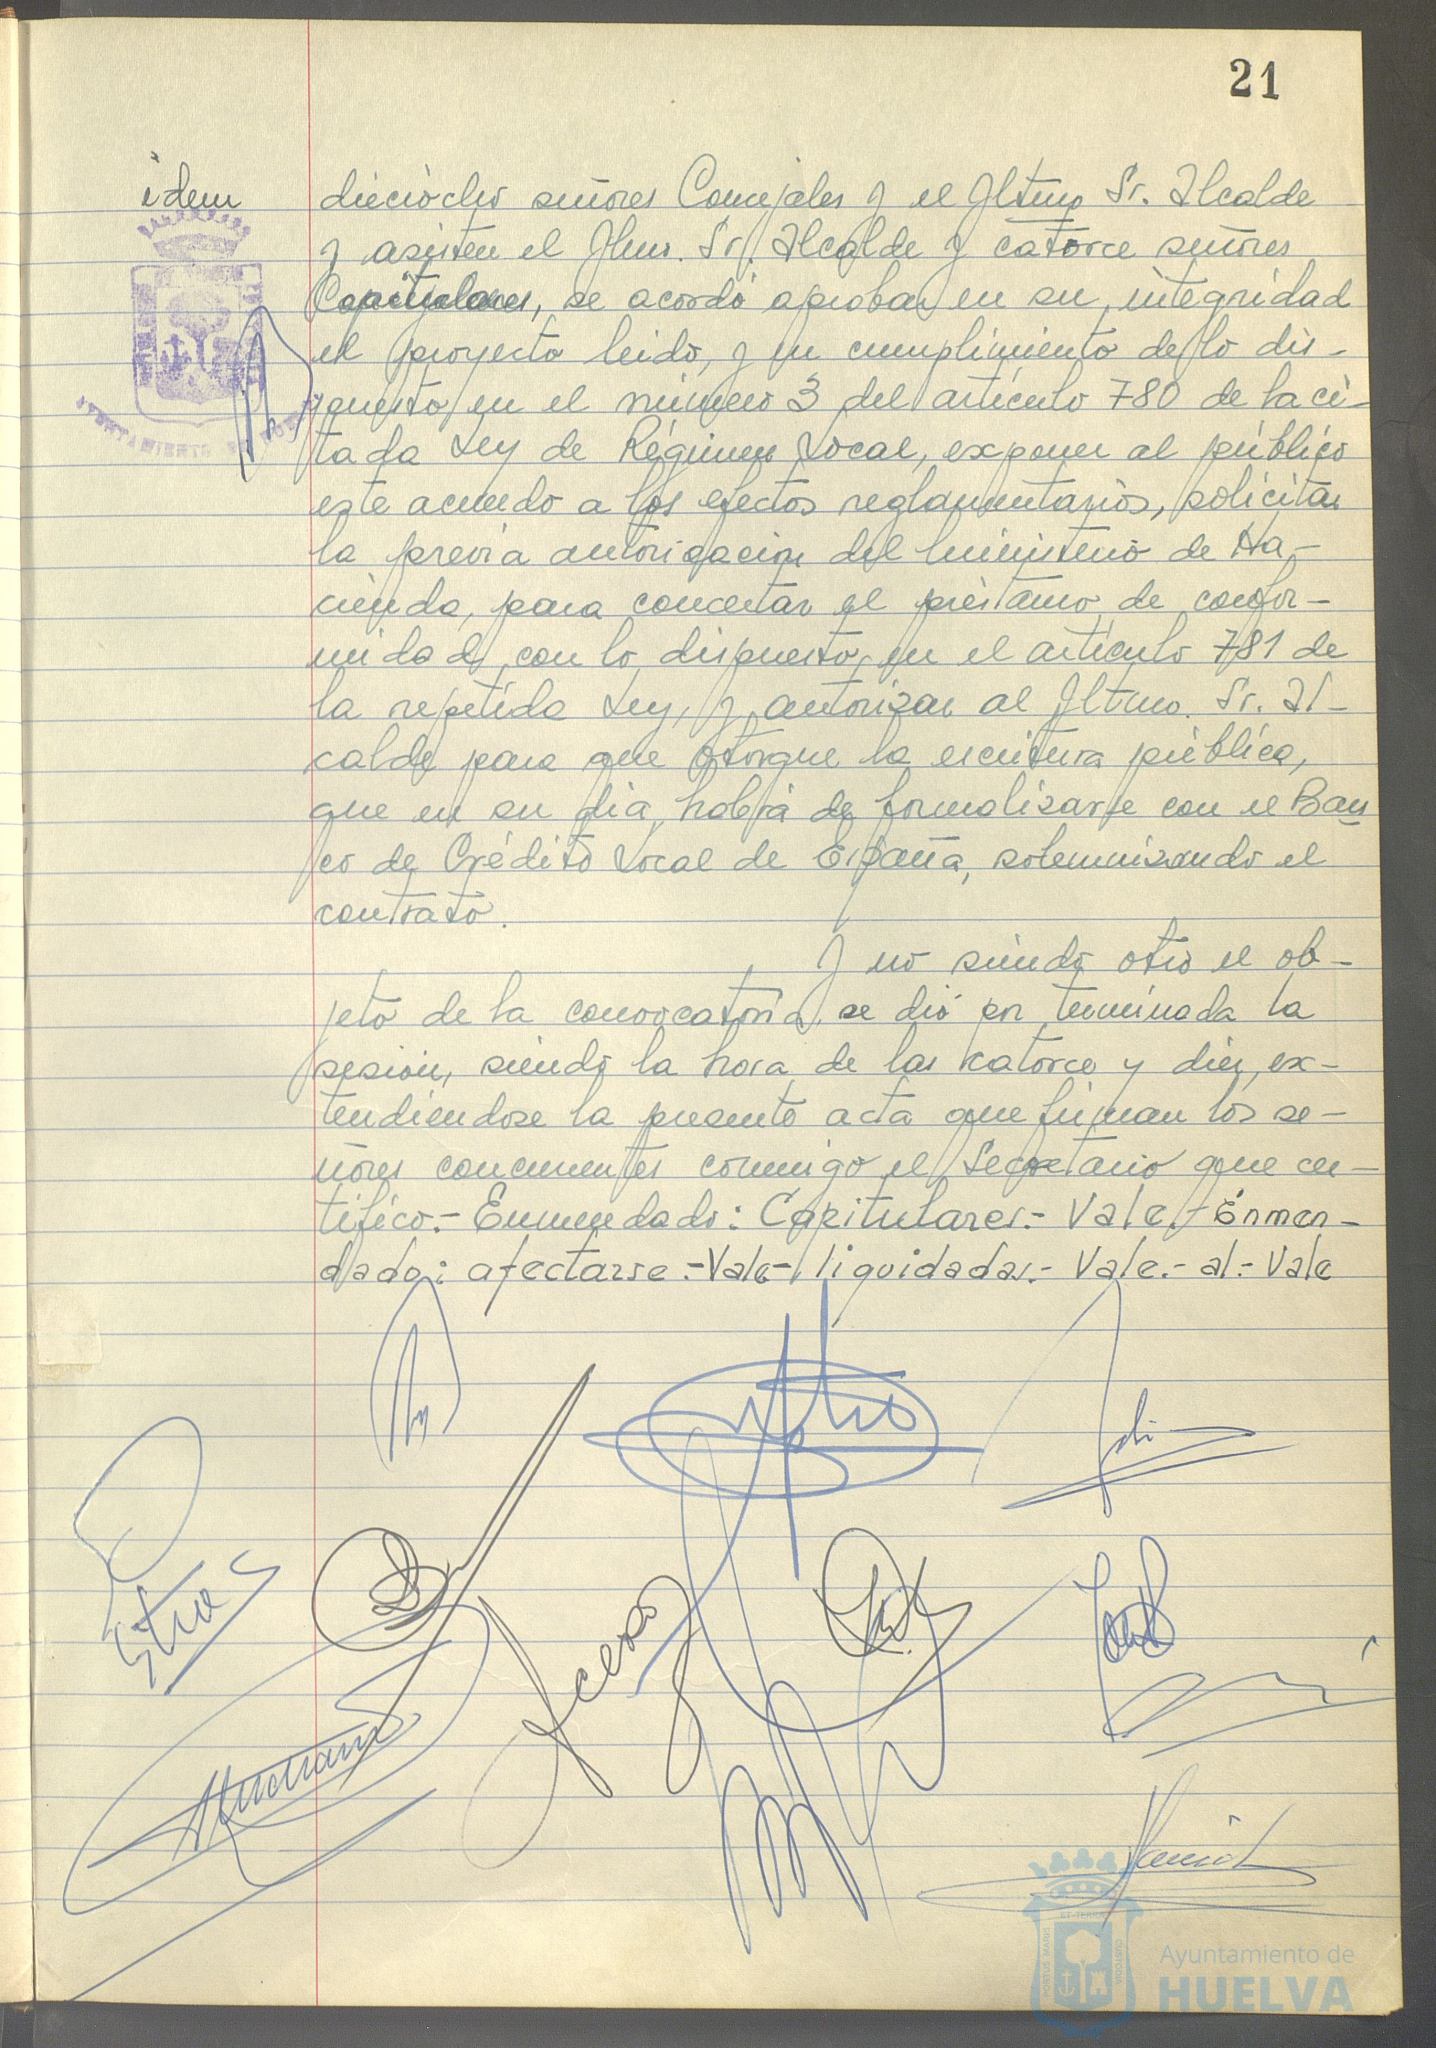 21
idem
dieciocho señores Concejales y el Iltmo Sr. Alcalde
y asisten el Ilmo. Sr. Alcalde y catorce señores
Capitulares, se acordó aprobar en su integridad
el proyecto leido, y en cumplimiento de lo dis-
puesto en el número 3 del artículo 780 de la ci-
tada Ley de Régimen Local, exponer al público
este acuerdo a los efectos reglamentarios, solicitar
la previa autorizacion del Ministerio de Ha-
cienda, para concertar el préstamo de confor-
midad con lo dispuesto en el artículo 781 de
la repetida Ley, y autorizar al Iltmo. Sr. Al-
calde para que otorgue la escritura pública,
que en su dia habrá de formalizarse con el Ban
co de Crédito Local de España, solemnizando el
contrato.
Y no siendo otro el ob-
jeto de la convocatoria, se dió por terminada la
sesión, siendo la hora de las catorce y diez, ex-
tendiendose la presente acta que firman los se-
ñores concurrentes conmigo el Secretario que cer-
tifico.- Enmendado: Capitulares.- Vale.- Enmen-
dado: afectarse.- Vale.- liquidadas.- Vale.- al.- Vale
Ayuntamiento de
HUELVA